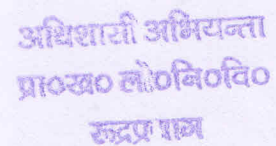 अधिशासी अभियन्ता
प्रा०ख० लो०नि०वि०
रूद्रप्रयाग